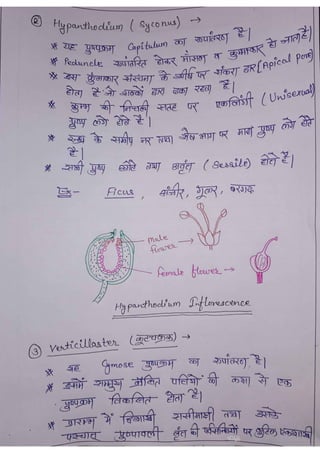 ② Hypanthodium ( Syconus ) →
* यह पुष्पक्रम Capitulum का रूपांतरण है।
* Peduncle रूपांतरित होकर मांसल व कुम्भाकार हो जाता है।
* इस कुम्भाकार संरचना के शीर्ष पर संकरा द्वार (Apical Pore)
होता है जो शल्कों द्वारा ढका रहता है।
* कुम्भ की भित्ती सतह पर एकलिंगी ( Unisexual )
पुष्प लगे होते हैं।
* के समीप नर तथा भाग पर मादा पुष्प लगे होते
हैं।
* सभी पुष्प छोटे तथा अवृंत ( Sessile ) होते हैं।
Ex:- Ficus , अंजीर, गूलर, बरगद
male flower →
Female flower →
Hypanthodium Inflorescence
③ Verticillaster (कूटचक्रक) →
* यह Cymose पुष्पक्रम का रूपांतरण है।
* इसमें सम्मुख पत्तियों की कक्ष से एक
पुष्पक्रम विकसित होता है।
* प्रारम्भ में द्विशाखी ससीमाक्षी तथा उसके
पश्चात् पुष्पावली वृंत की पर एकशाखी